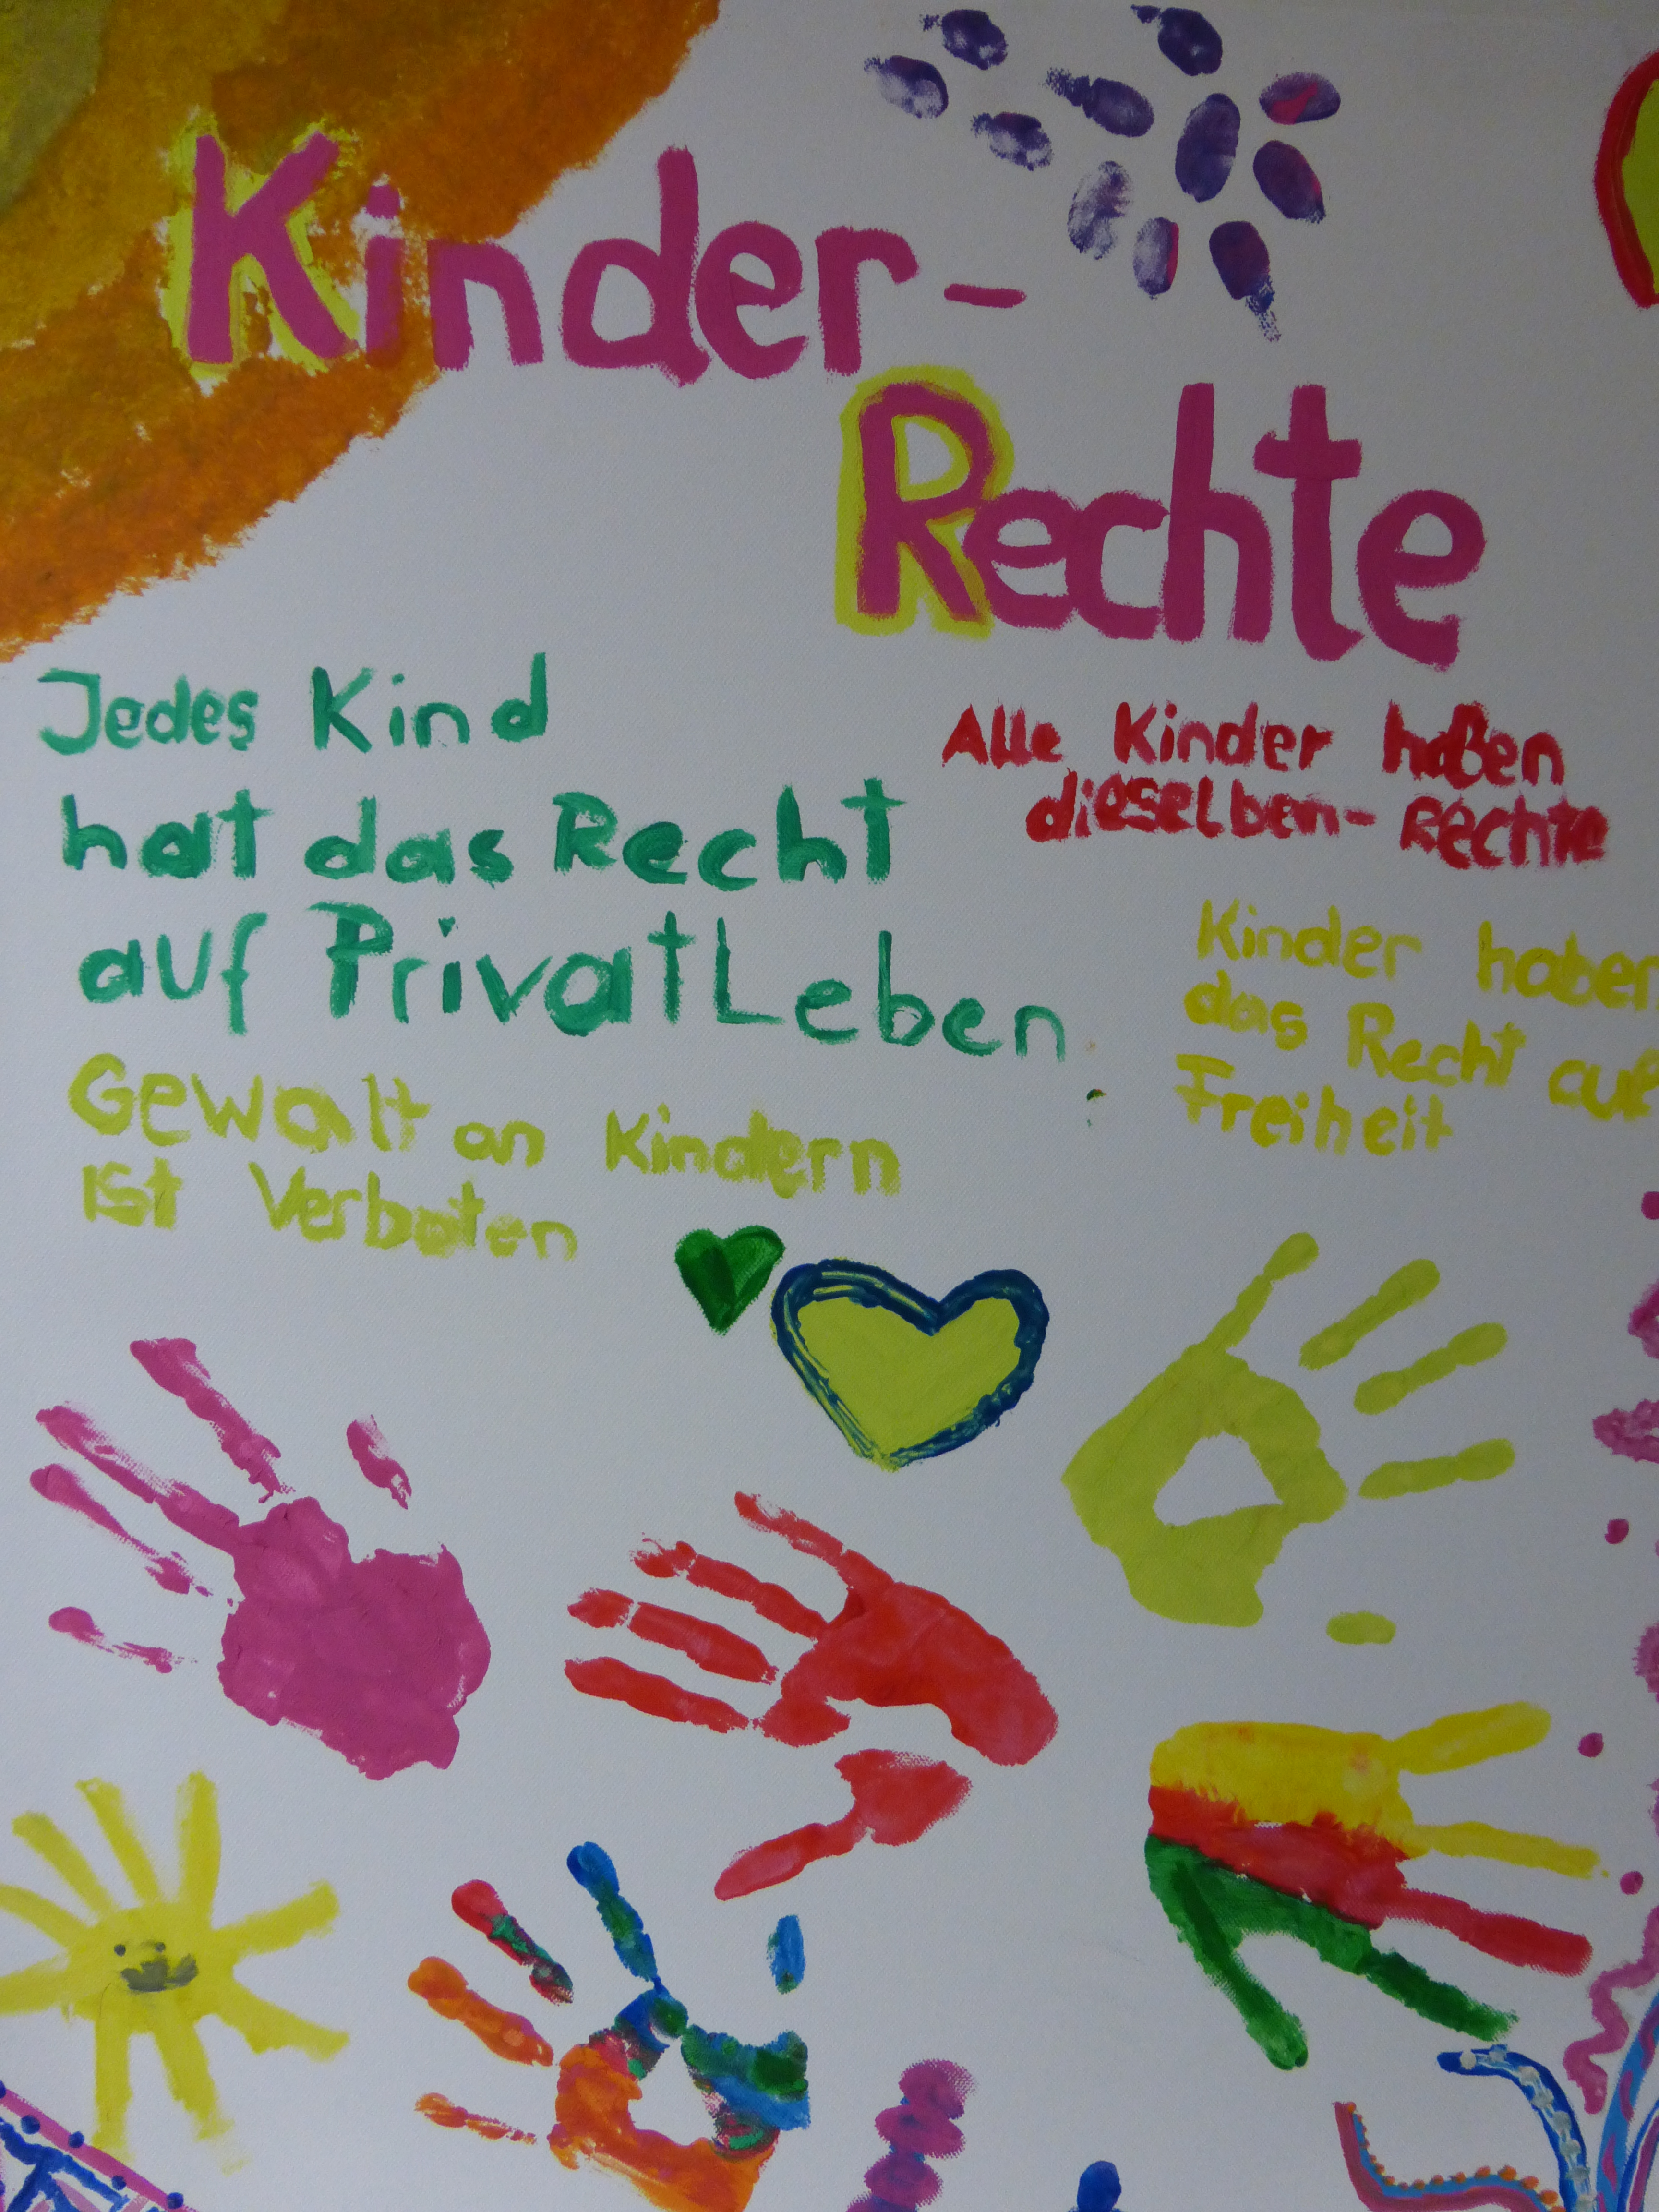 Kinder-
Rechte
Jedes Kind
hat das Recht
auf PrivatLeben
Alle Kinder haben
dieselben-Rechte
Kinder haben
das Recht auf
Freiheit
Gewalt an Kindern
ist Verboten